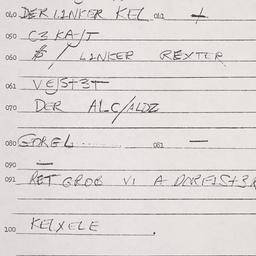 040 DER LINKER KEL 042 +
050 C3 KAJT
060 $ / LINKER REXTER
061 VEJST3T
070 DER ALC/ALDZ
080 GOREL 081 —
090 —
091 RET GROB VI A
100 KELXELE .